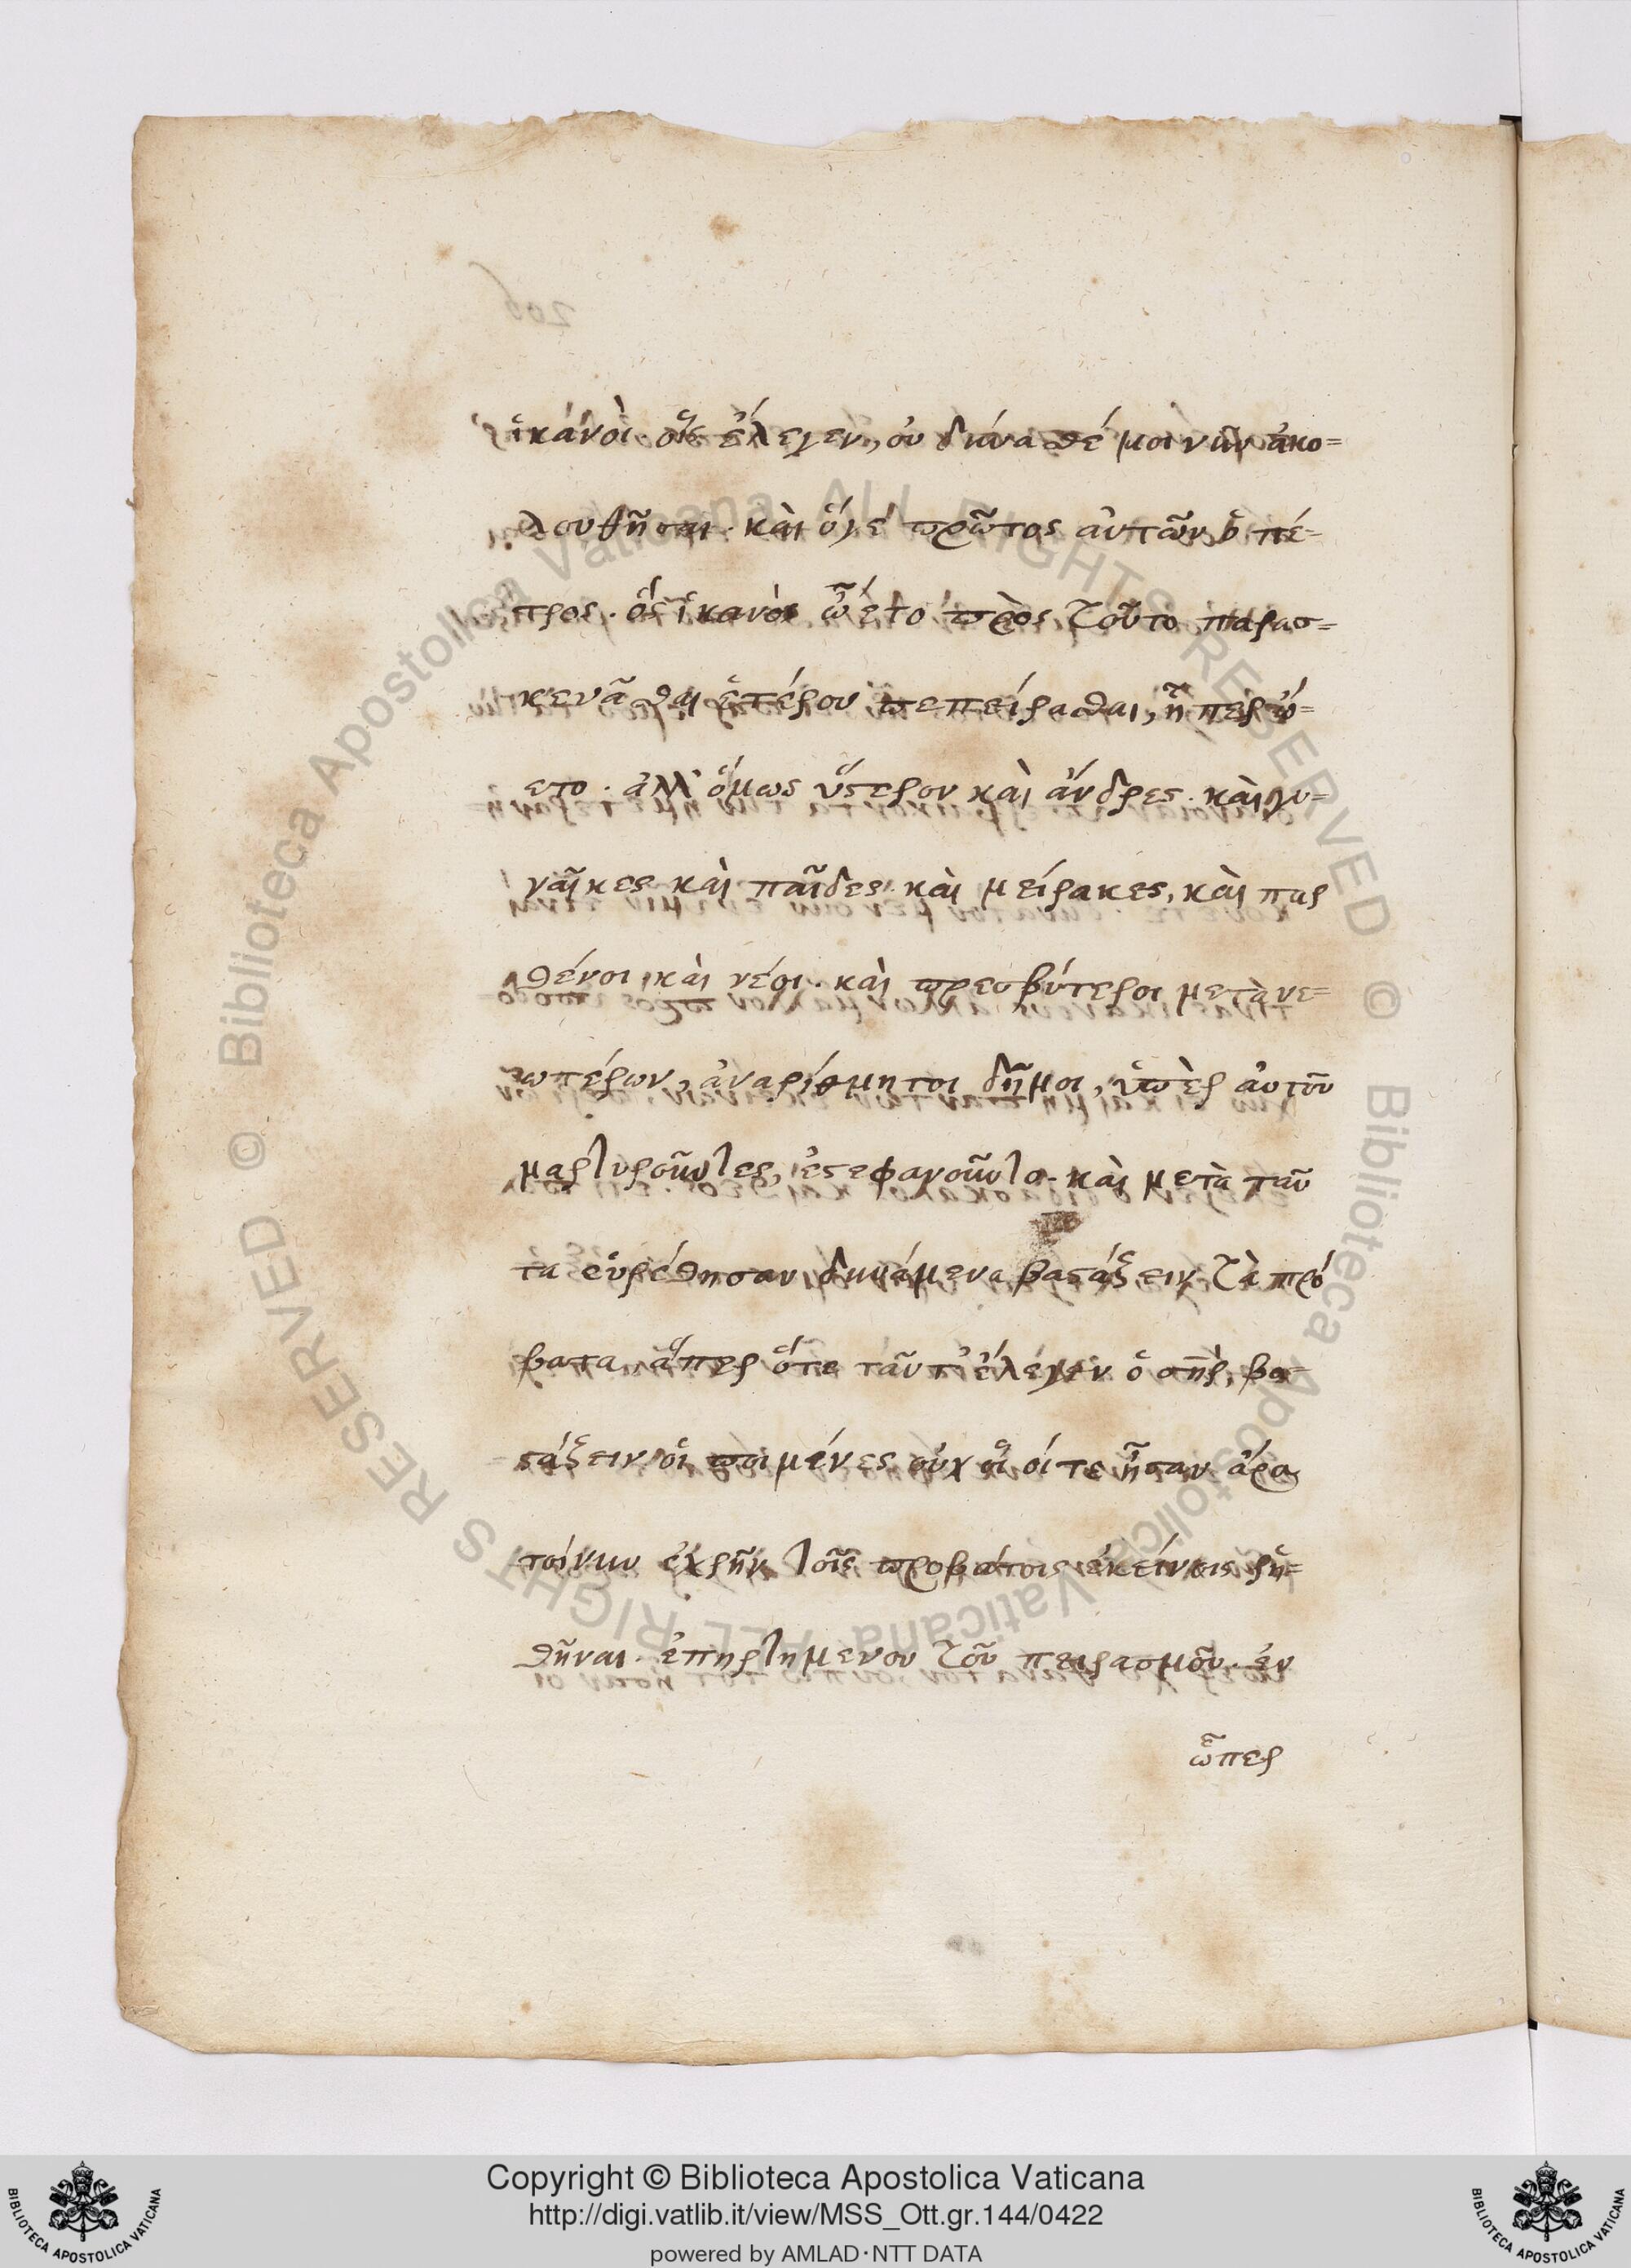 ἱκανοὶ οἷς ἔλεγεν, οὐ δύνασθέ μοι νῦν ἀκο=
λουθῆσαι. καὶ ὅγε πρῶτος αὐτῶν ὁ πέ=
τρος. ὃς ἱκανὸς ᾤετο πρὸς τοῦτο παρασ=
κευᾶσθαι ἑτέρου πεπείρασθαι, ἤπερ ᾤ=
ετο. ἀλλ' ὅμως ὕστερον καὶ ἄνδρες. καὶ γυ=
ναῖκες καὶ παῖδες. καὶ μείρακες, καὶ παρ
θένοι καὶ νέοι. καὶ πρεσβύτεροι μετὰ νε=
ωτέρων, ἀναρίθμητοι δῆμοι, ὑπὲρ αὐτοῦ
μαρτυροῦντες, ἐστεφανοῦντο. καὶ μετὰ ταῦ
τα εὑρέθησαν δυνάμενα βαστάξειν τὰ πρό
βατα, ἅπερ ὅτε ταῦτ' ἔλεγεν ὁ σηρ, βα=
στάξειν οἱ ποιμένες οὐχ οἷοί τε ἦσαν ἆρα
τοίνυν ἐχρῆν τοῖς προβάτοις ἐκείνοις ῥη=
θῆναι. ἐπηρτημένου τοῦ πειρασμοῦ. ἐν
ᾧπερ
Copyright © Biblioteca Apostolica Vaticana
http://digi.vatlib.it/view/MSS_Ott.gr.144/0422
powered by AMLAD·NTT DATA
BIBLIOTECA APOSTOLICA VATICANA
BIBLIOTECA APOSTOLICA VATICANA
© Biblioteca Apostolica Vaticana ALL RIGHTS RESERVED © Biblioteca Apostolica Vaticana ALL RIGHTS RESERVED